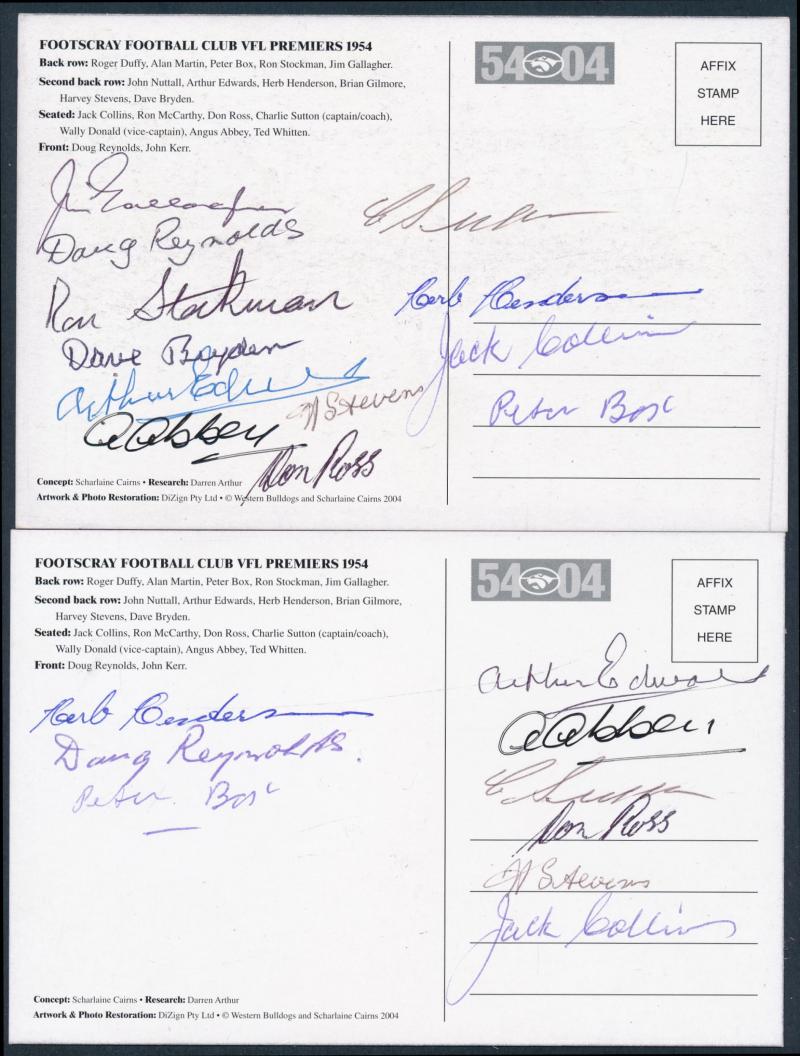 FOOTSCRAY FOOTBALL CLUB VFL PREMIERS 1954
Back row: Roger Duffy, Alan Martin, Peter Box, Ron Stockman, Jim Gallagher.
Second back row: John Nuttall, Arthur Edwards, Herb Henderson, Brian Gilmore,
Harvey Stevens, Dave Bryden.
Seated: Jack Collins, Ron McCarthy, Don Ross, Charlie Sutton (captain/coach),
Wally Donald (vice-captain), Angus Abbey, Ted Whitten.
Front: Doug Reynolds, John Kerr.
Jim Gallagher
Doug Reynolds
Ron Stockman
Dave Bryden
Arthur Edwards
A Abbey
H Stevens
Don Ross
Concept: Scharlaine Cairns • Research: Darren Arthur
Artwork & Photo Restoration: DiZign Pty Ltd • © Western Bulldogs and Scharlaine Cairns 2004
54 04
AFFIX
STAMP
HERE
C Sutton
Herb Henderson
Jack Collins
Peter Box
FOOTSCRAY FOOTBALL CLUB VFL PREMIERS 1954
Back row: Roger Duffy, Alan Martin, Peter Box, Ron Stockman, Jim Gallagher.
Second back row: John Nuttall, Arthur Edwards, Herb Henderson, Brian Gilmore,
Harvey Stevens, Dave Bryden.
Seated: Jack Collins, Ron McCarthy, Don Ross, Charlie Sutton (captain/coach),
Wally Donald (vice-captain), Angus Abbey, Ted Whitten.
Front: Doug Reynolds, John Kerr.
Herb Henderson
Doug Reynolds.
Peter Box
Concept: Scharlaine Cairns • Research: Darren Arthur
Artwork & Photo Restoration: DiZign Pty Ltd • © Western Bulldogs and Scharlaine Cairns 2004
54 04
AFFIX
STAMP
HERE
Arthur Edwards
A Abbey
C Sutton
Don Ross
H Stevens
Jack Collins